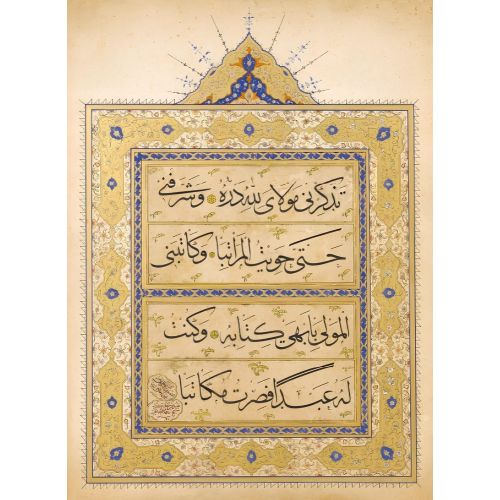 تذكرني مولاي لله دره وشرفني
حتى حويت المراتبا وكاتبني
المولى بابهى كتابه وكنت
له عبدا فصرت مكاتبا